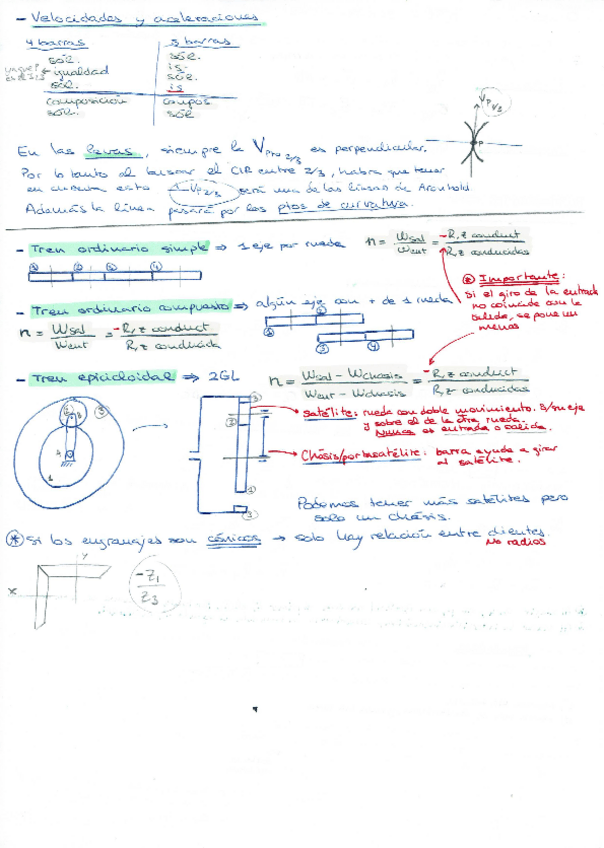 - Velocidades y aceleraciones
4 barras   5 barras
sól.   sól.
igualdad   is.
sól.   sól.
is
composición   compos
sól.   sól
En las levas, siempre la VP10 2/3 es perpendicular.
Por lo tanto al buscar el CIR entre 2/3, habra que tener
en cuenta esto VP2/3 será una de las líneas de Aronhold
Además la línea pasará por los ptos de curvatura.
- Tren ordinario simple ⇒ 1 eje por rueda   n = Wsal/Went = -R, z conduct/R, z conducidas
* Importante:
Si el giro de la entrada
no coincide con la
salida, se pone un
menos
- Tren ordinario compuesto ⇒ algún eje con + de 1 rueda
n = Wsal/Went = -R, z conduct/R, z conducida
- Tren epicicloidal ⇒ 2GL   n = Wsal - Wchasis/Went - Wchasis = -R, z conduct/R, z conducidas
Satélite: rueda con doble movimiento. S/su eje
y sobre el de la otra rueda.
Nunca es entrada o salida.
Chásis/portasatélite: barra, ayuda a girar
al satélite.
Podemos tener más satélites pero
solo un chásis.
* Si los engranajes son cónicos → solo hay relación entre dientes.
No radios
x   y   -Z1/Z3